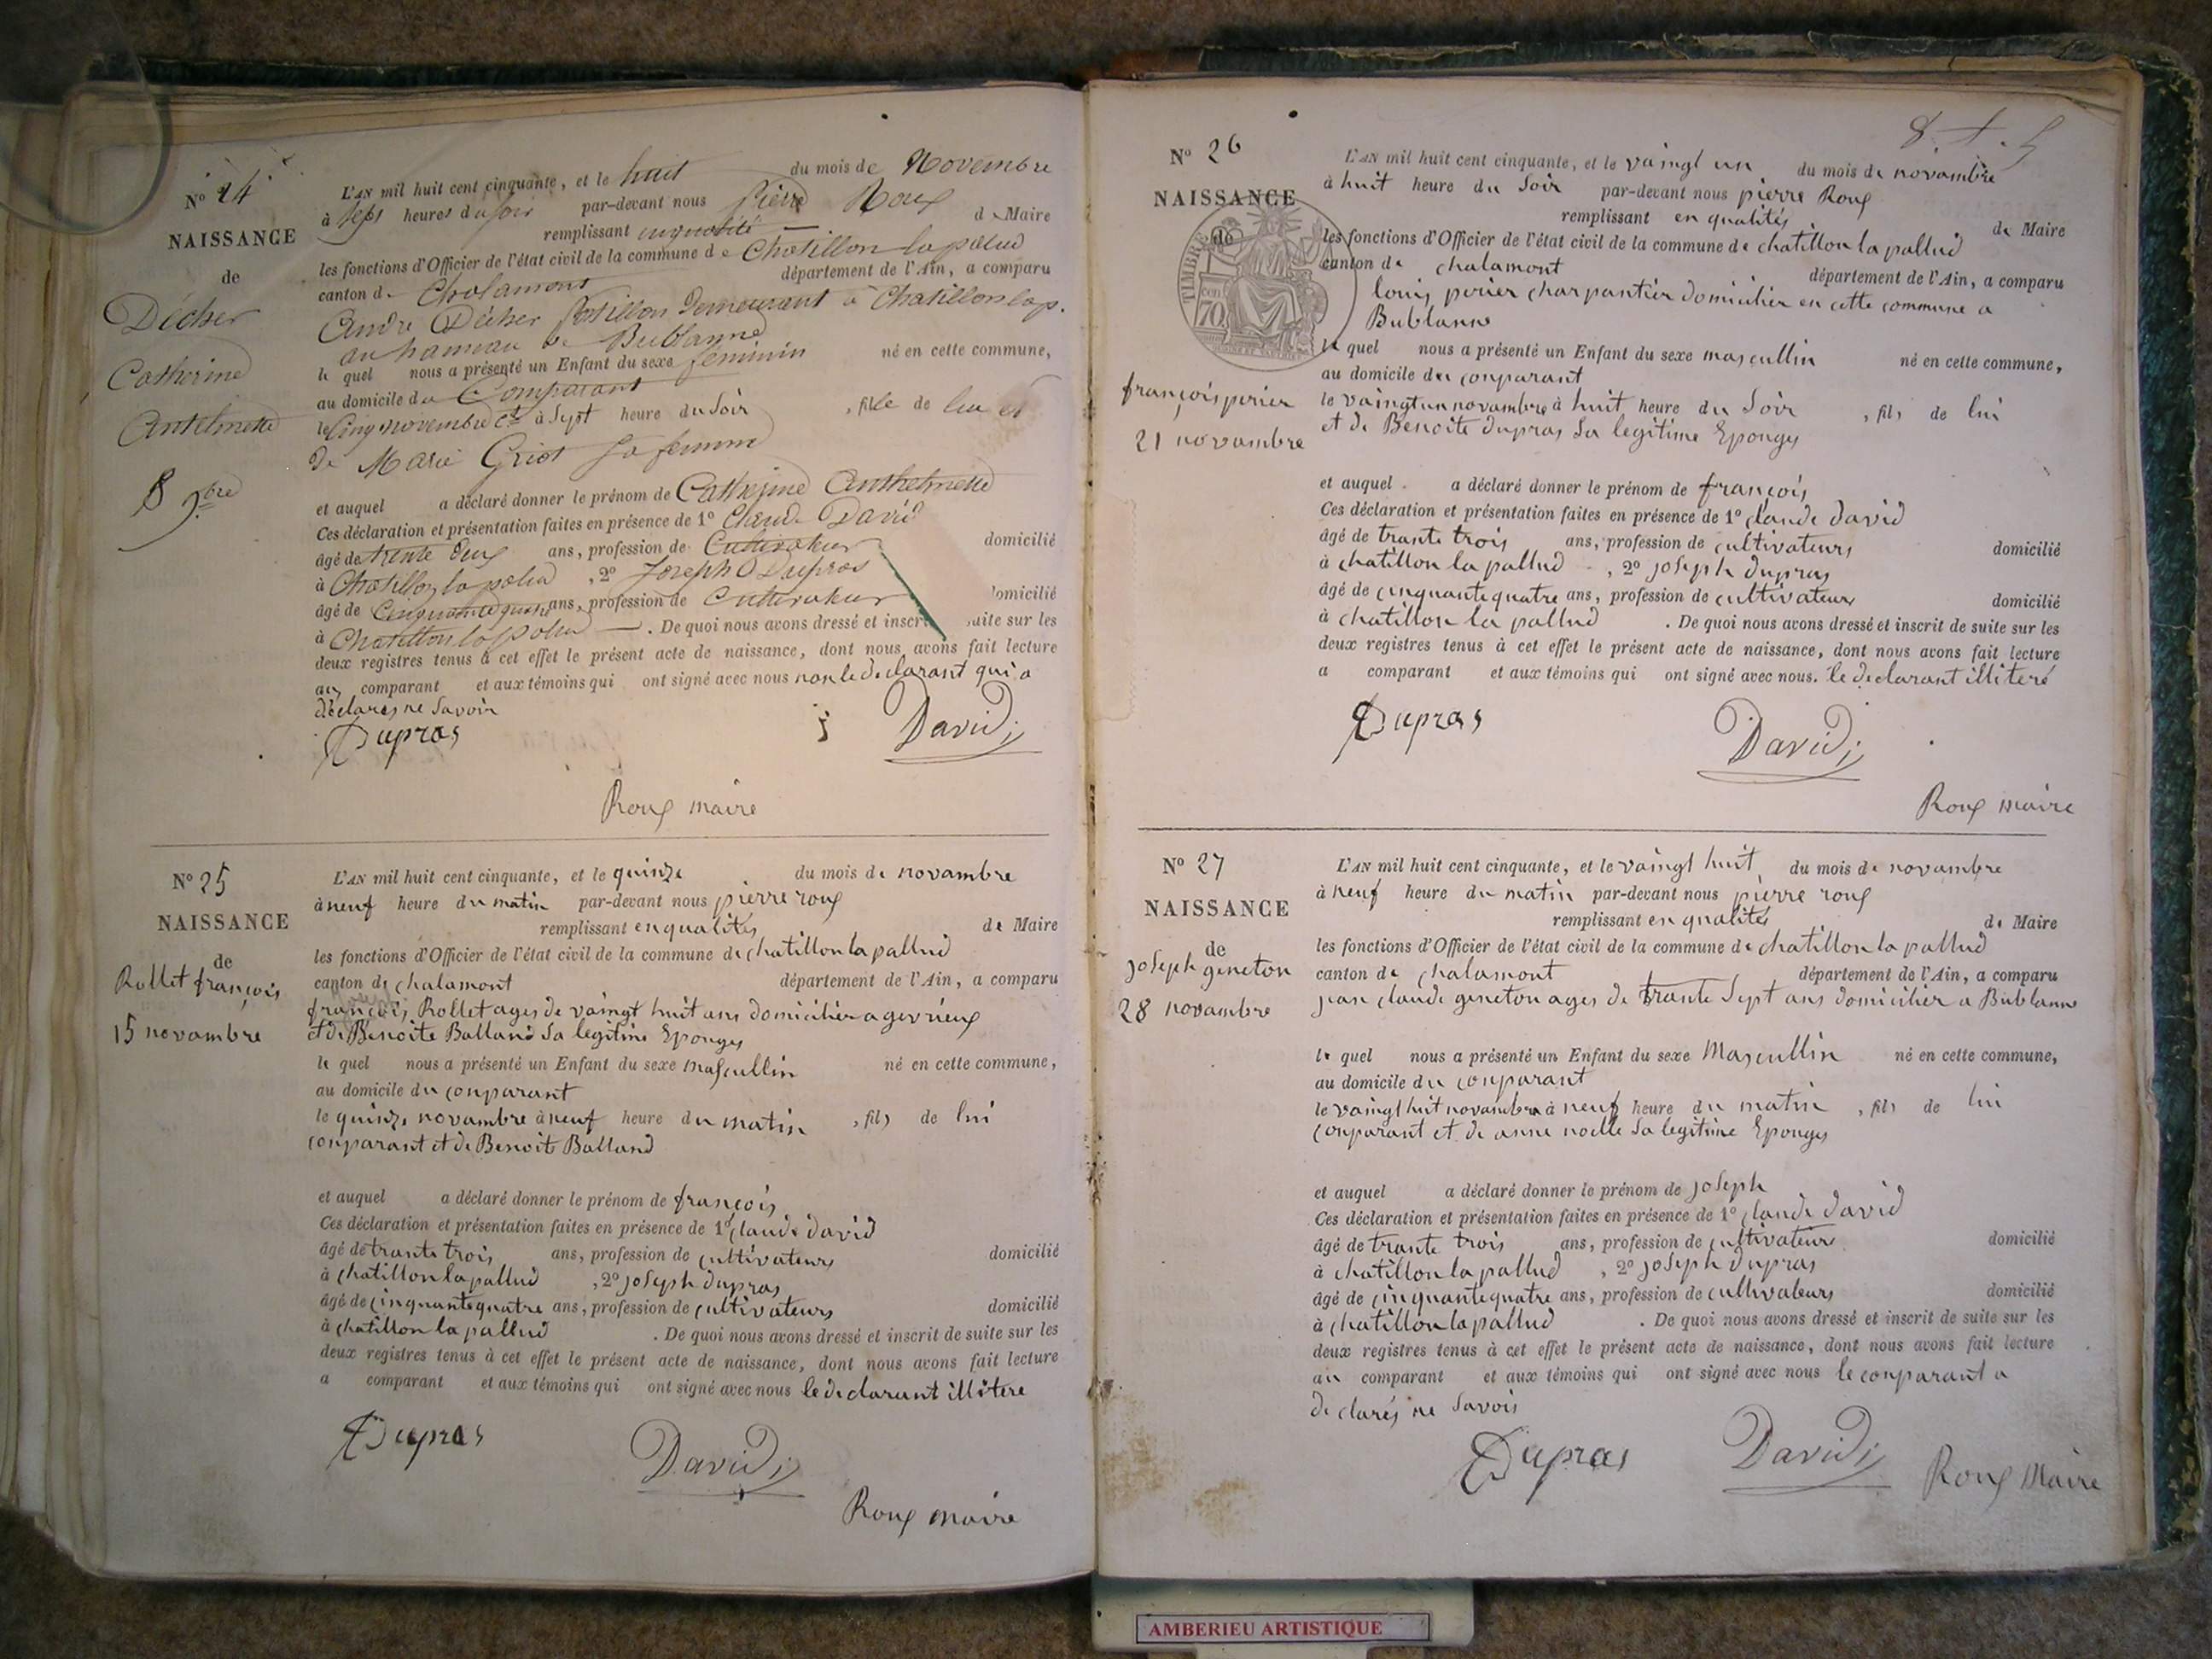 No 24
NAISSANCE
de
Décher
Catherine
Antelmette
8 9bre
L'AN mil huit cent cinquante, et le huit du mois de Novembre
à sept heures du soir par-devant nous Pierre Roux
remplissant en qualité de Maire
les fonctions d'Officier de l'état civil de la commune de Chatillon la palud
canton de Chalamont département de l'Ain, a comparu
André Décher Postillon demeurant à Chatillon lap.
au hameau de Bublanne
le quel nous a présenté un Enfant du sexe féminin né en cette commune,
au domicile du Comparant
le Cinq novembre ct à Sept heure du Soir , fille de lui et
de Marie Griot Sa femme
et auquel a déclaré donner le prénom de Catherine Anthelmette
Ces déclaration et présentation faites en présence de 1o Claude David
âgé de trente deux ans, profession de Cultivateur domicilié
à Chatillon la palud , 2o Joseph Dupras
âgé de Cinquante quatre ans, profession de Cultivateur domicilié
à Chatillon la Palud — . De quoi nous avons dressé et inscrit suite sur les
deux registres tenus à cet effet le présent acte de naissance, dont nous avons fait lecture
au comparant et aux témoins qui ont signé avec nous non le declarant qui a
déclarés ne Savoir
Dupras
David
Roux maire
No 25
NAISSANCE
de
Rollet françois
15 novambre
L'AN mil huit cent cinquante, et le quinze du mois de novambre
à neuf heure du matin par-devant nous pierre roux
remplissant en qualités de Maire
les fonctions d'Officier de l'état civil de la commune de chatillon la pallud
canton de chalamont département de l'Ain, a comparu
françois Rollet ages de vaingt huit ans domicilier a gevrieux
et de Benoite Balland Sa legitime Epouges
le quel nous a présenté un Enfant du sexe mascullin né en cette commune,
au domicile du conparant
le quinze novambre à neuf heure du matin , fils de lui
conparant et de Benoit Balland
et auquel a déclaré donner le prénom de françois
Ces déclaration et présentation faites en présence de 1o claude david
âgé de trante trois ans, profession de cultivateurs domicilié
à chatillon la pallud , 2o joseph dupras
âgé de cinquante quatre ans, profession de cultivateurs domicilié
à chatillon la pallud . De quoi nous avons dressé et inscrit de suite sur les
deux registres tenus à cet effet le présent acte de naissance, dont nous avons fait lecture
a comparant et aux témoins qui ont signé avec nous le declarant illitere
Dupras
David
Roux maire
No 26
NAISSANCE
de
TIMBRE
70
françois perier
21 novambre
L'AN mil huit cent cinquante, et le vaingt un du mois de novambre
à huit heure du Soir par-devant nous pierre Roux
remplissant en qualités de Maire
les fonctions d'Officier de l'état civil de la commune de chatillon la pallud
canton de chalamont département de l'Ain, a comparu
louis perier charpantier domicilier en cette commune a
Bublanne
le quel nous a présenté un Enfant du sexe mascullin né en cette commune,
au domicile du conparant
le vaingt un novambre à huit heure du Soir , fils de lui
et de Benoite dupras Sa legitime Epouges
et auquel a déclaré donner le prénom de françois
Ces déclaration et présentation faites en présence de 1o claude david
âgé de trante trois ans, profession de cultivateurs domicilié
à chatillon la pallud , 2o joseph dupras
âgé de cinquante quatre ans, profession de cultivateurs domicilié
à chatillon la pallud . De quoi nous avons dressé et inscrit de suite sur les
deux registres tenus à cet effet le présent acte de naissance, dont nous avons fait lecture
a comparant et aux témoins qui ont signé avec nous. le declarant illiteré
Dupras
David
Roux maire
No 27
NAISSANCE
de
joseph geneton
28 novambre
L'AN mil huit cent cinquante, et le vaingt huit du mois de novambre
à neuf heure du matin par-devant nous pierre roux
remplissant en qualités de Maire
les fonctions d'Officier de l'état civil de la commune de chatillon la pallud
canton de chalamont département de l'Ain, a comparu
jean claude geneton ages de trante Sept ans domicilier a Bublanne
le quel nous a présenté un Enfant du sexe Mascullin né en cette commune,
au domicile du conparant
le vaingt huit novambre à neuf heure du matin , fils de lui
conparant et de anne noelle Sa legitime Epouges
et auquel a déclaré donner le prénom de joseph
Ces déclaration et présentation faites en présence de 1o claude david
âgé de trante trois ans, profession de cultivateur domicilié
à chatillon la pallud , 2o joseph dupras
âgé de cinquante quatre ans, profession de cultivateurs domicilié
à chatillon la pallud . De quoi nous avons dressé et inscrit de suite sur les
deux registres tenus à cet effet le présent acte de naissance, dont nous avons fait lecture
au comparant et aux témoins qui ont signé avec nous le conparant a
declarés ne Savois
Dupras
David
Roux Maire
AMBERIEU ARTISTIQUE